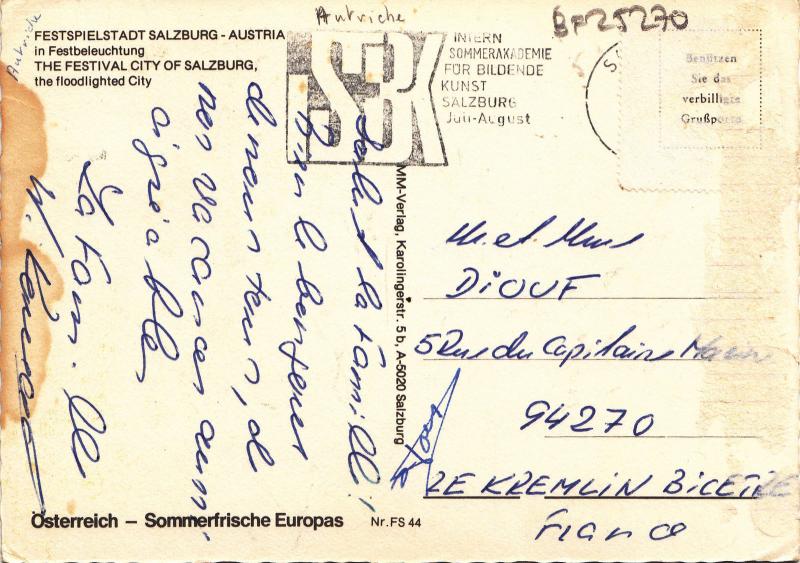 Autriche
Autriche
BF25270
FESTSPIELSTADT SALZBURG - AUSTRIA
in Festbeleuchtung
THE FESTIVAL CITY OF SALZBURG,
the floodlighted City
SBK
INTERN
SOMMERAKADEMIE
FÜR BILDENDE
KUNST
SALZBURG
Juli-August
Benützen
Sie das
verbilligte
Grußporto
Salut la Famille!
Bien le bonjour
de nous tous, de
nos vacances
agréable
La Famille
MM-Verlag, Karolingerstr. 5 b, A-5020 Salzburg
M. et Mme
DIOUF
5 Rue du Capitaine
94270
LE KREMLIN BICETRE
France
Österreich – Sommerfrische Europas
Nr. FS 44